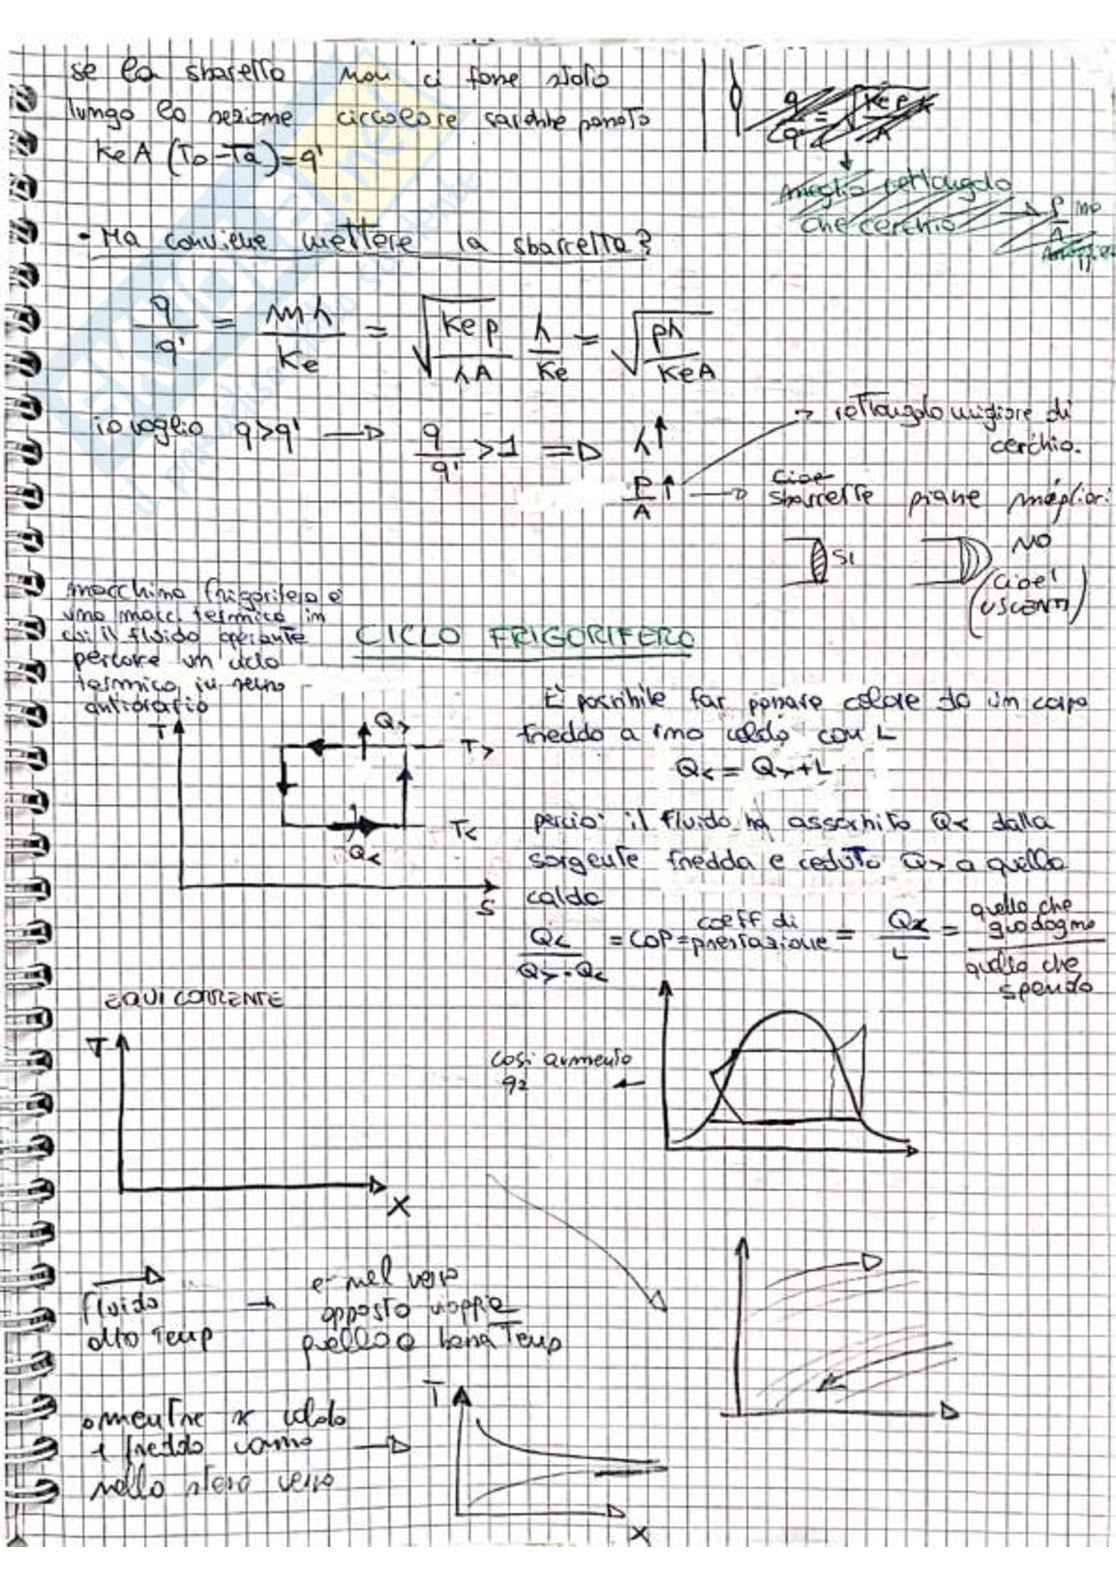 se la sbaretta non ci fosse stata
lungo la sezione circolare sarebbe passato
Ke A (To-Ta)=q'
q/q' = √(Ke P / A)
meglio rettangolo
che cerchio → P/A
• Ma conviene mettere la sbarretta?
q/q' = mλ/Ke = √(Ke p/λA) λ/Ke = √(pλ/KeA)
io voglio q>q' → q/q' >1 ⇒ λ↑
P/A ↑
→ rettangolo migliore di
cerchio.
cioè
→ sbarrette piane migliori
SI
NO
(cioè
USCENTI)
macchina frigorifera è
una macc. termica in
cui il fluido operante
percorre un ciclo
termico in senso
antiorario
CICLO FRIGORIFERO
T
Q>
T>
T<
Q<
S
È possibile far passare calore da un corpo
freddo a uno caldo con L
Q< = Q> + L
perciò il fluido ha assorbito Q< dalla
sorgente fredda e ceduto Q> a quella
calda
Q</(Q>-Q<) = COP = coeff di prestazione = Q</L = quello che guadagno/quello che spendo
EQUICORRENTE
T
X
così aumento
q2
fluido
alta Temp
→ e nel verso
opposto viaggia
quello a bassa Temp
• mentre se caldo
e freddo vanno →
nello stesso verso
T
X